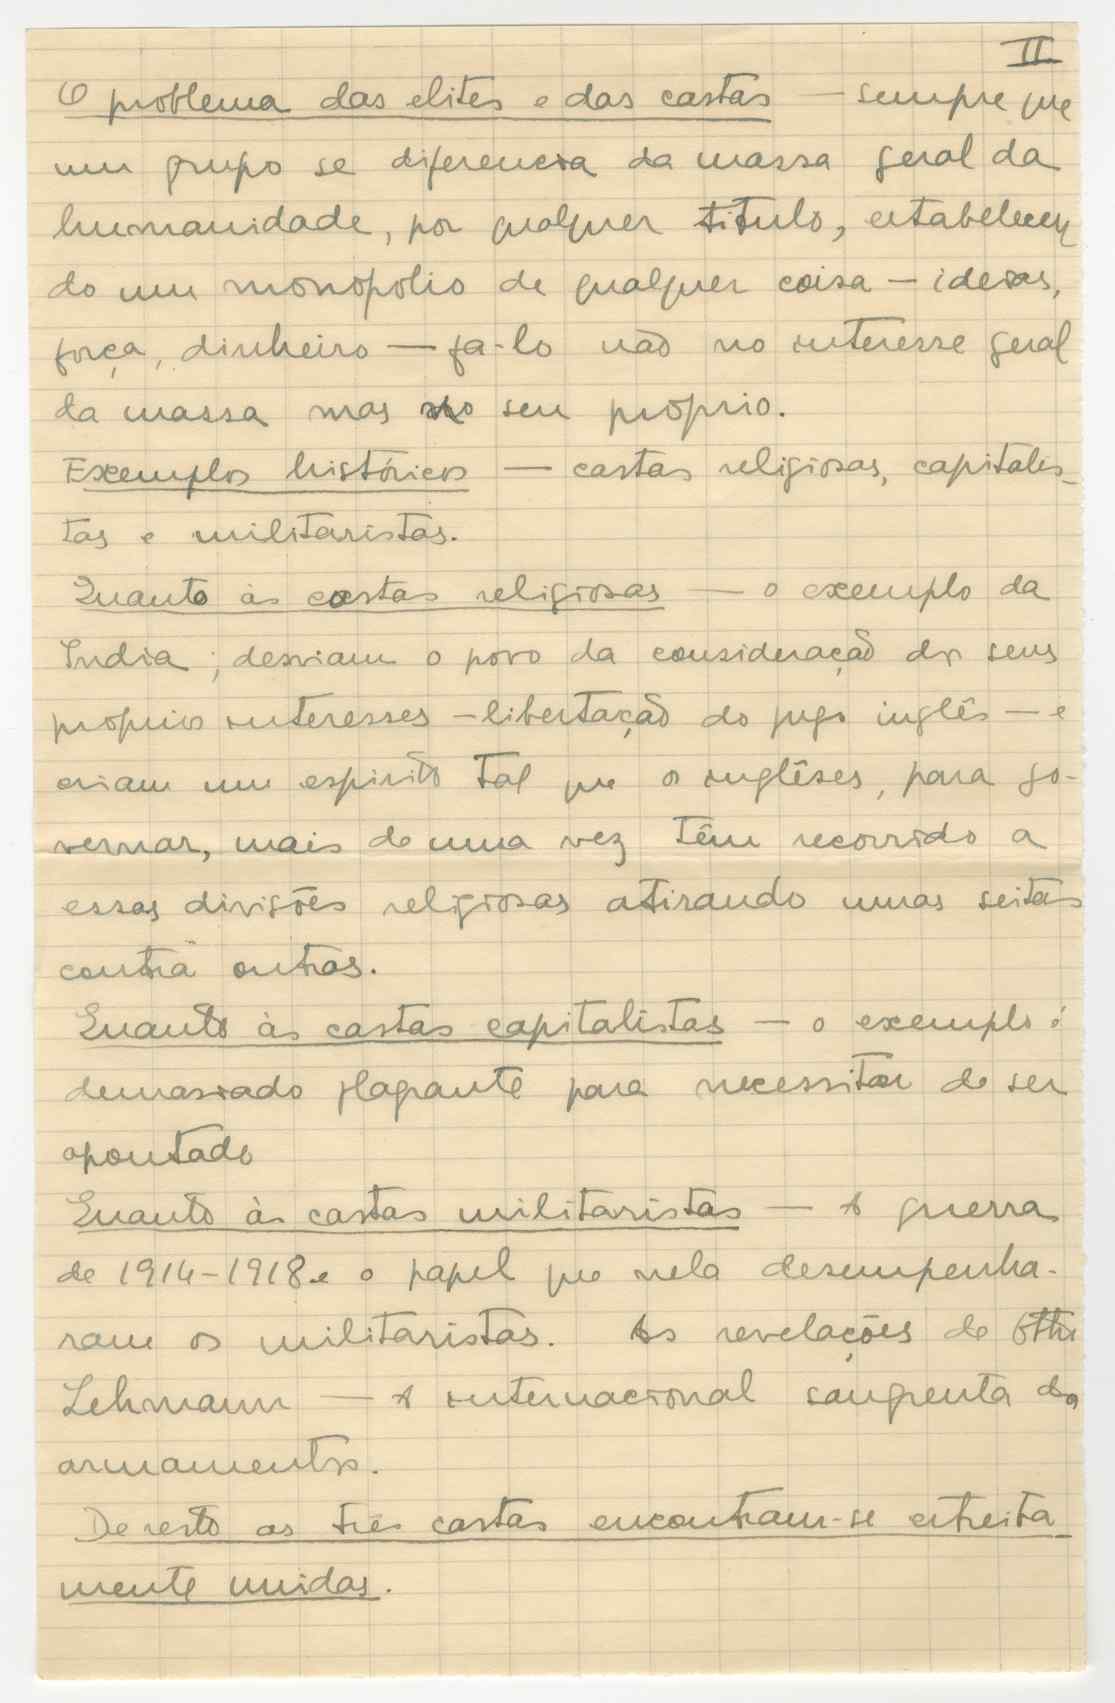 II
O problema das elites e das castas — sempre que
um grupo se diferencia da massa geral da
humanidade, por qualquer titulo, estabelecen
do um monopolio de qualquer coisa — ideias,
força, dinheiro — fa-lo não no interesse geral
da massa mas no seu proprio.
Exemplos históricos — castas religiosas, capitalis-
tas e militaristas.
Quanto às castas religiosas — o exemplo da
India; desviam o povo da consideração dos seus
proprios interesses — libertação do jugo inglês — e
criam um espirito tal que os inglêses, para go-
vernar, mais de uma vez têm recorrido a
essas divisões religiosas atirando umas seitas
contra outras.
Quanto às castas capitalistas — o exemplo é
demasiado flagrante para necessitar de ser
apontado
Quanto às castas militaristas — A guerra
de 1914-1918 e o papel que nela desempenha-
ram os militaristas. As revelações de Otto
Lehmann — A internacional sangrenta dos
armamentos.
De resto as três castas encontram-se estreita-
mente unidas.